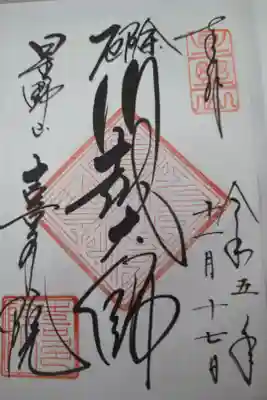 奉拝
令和五年
十二月十七日
厄除
川越大師
星野山
喜多院